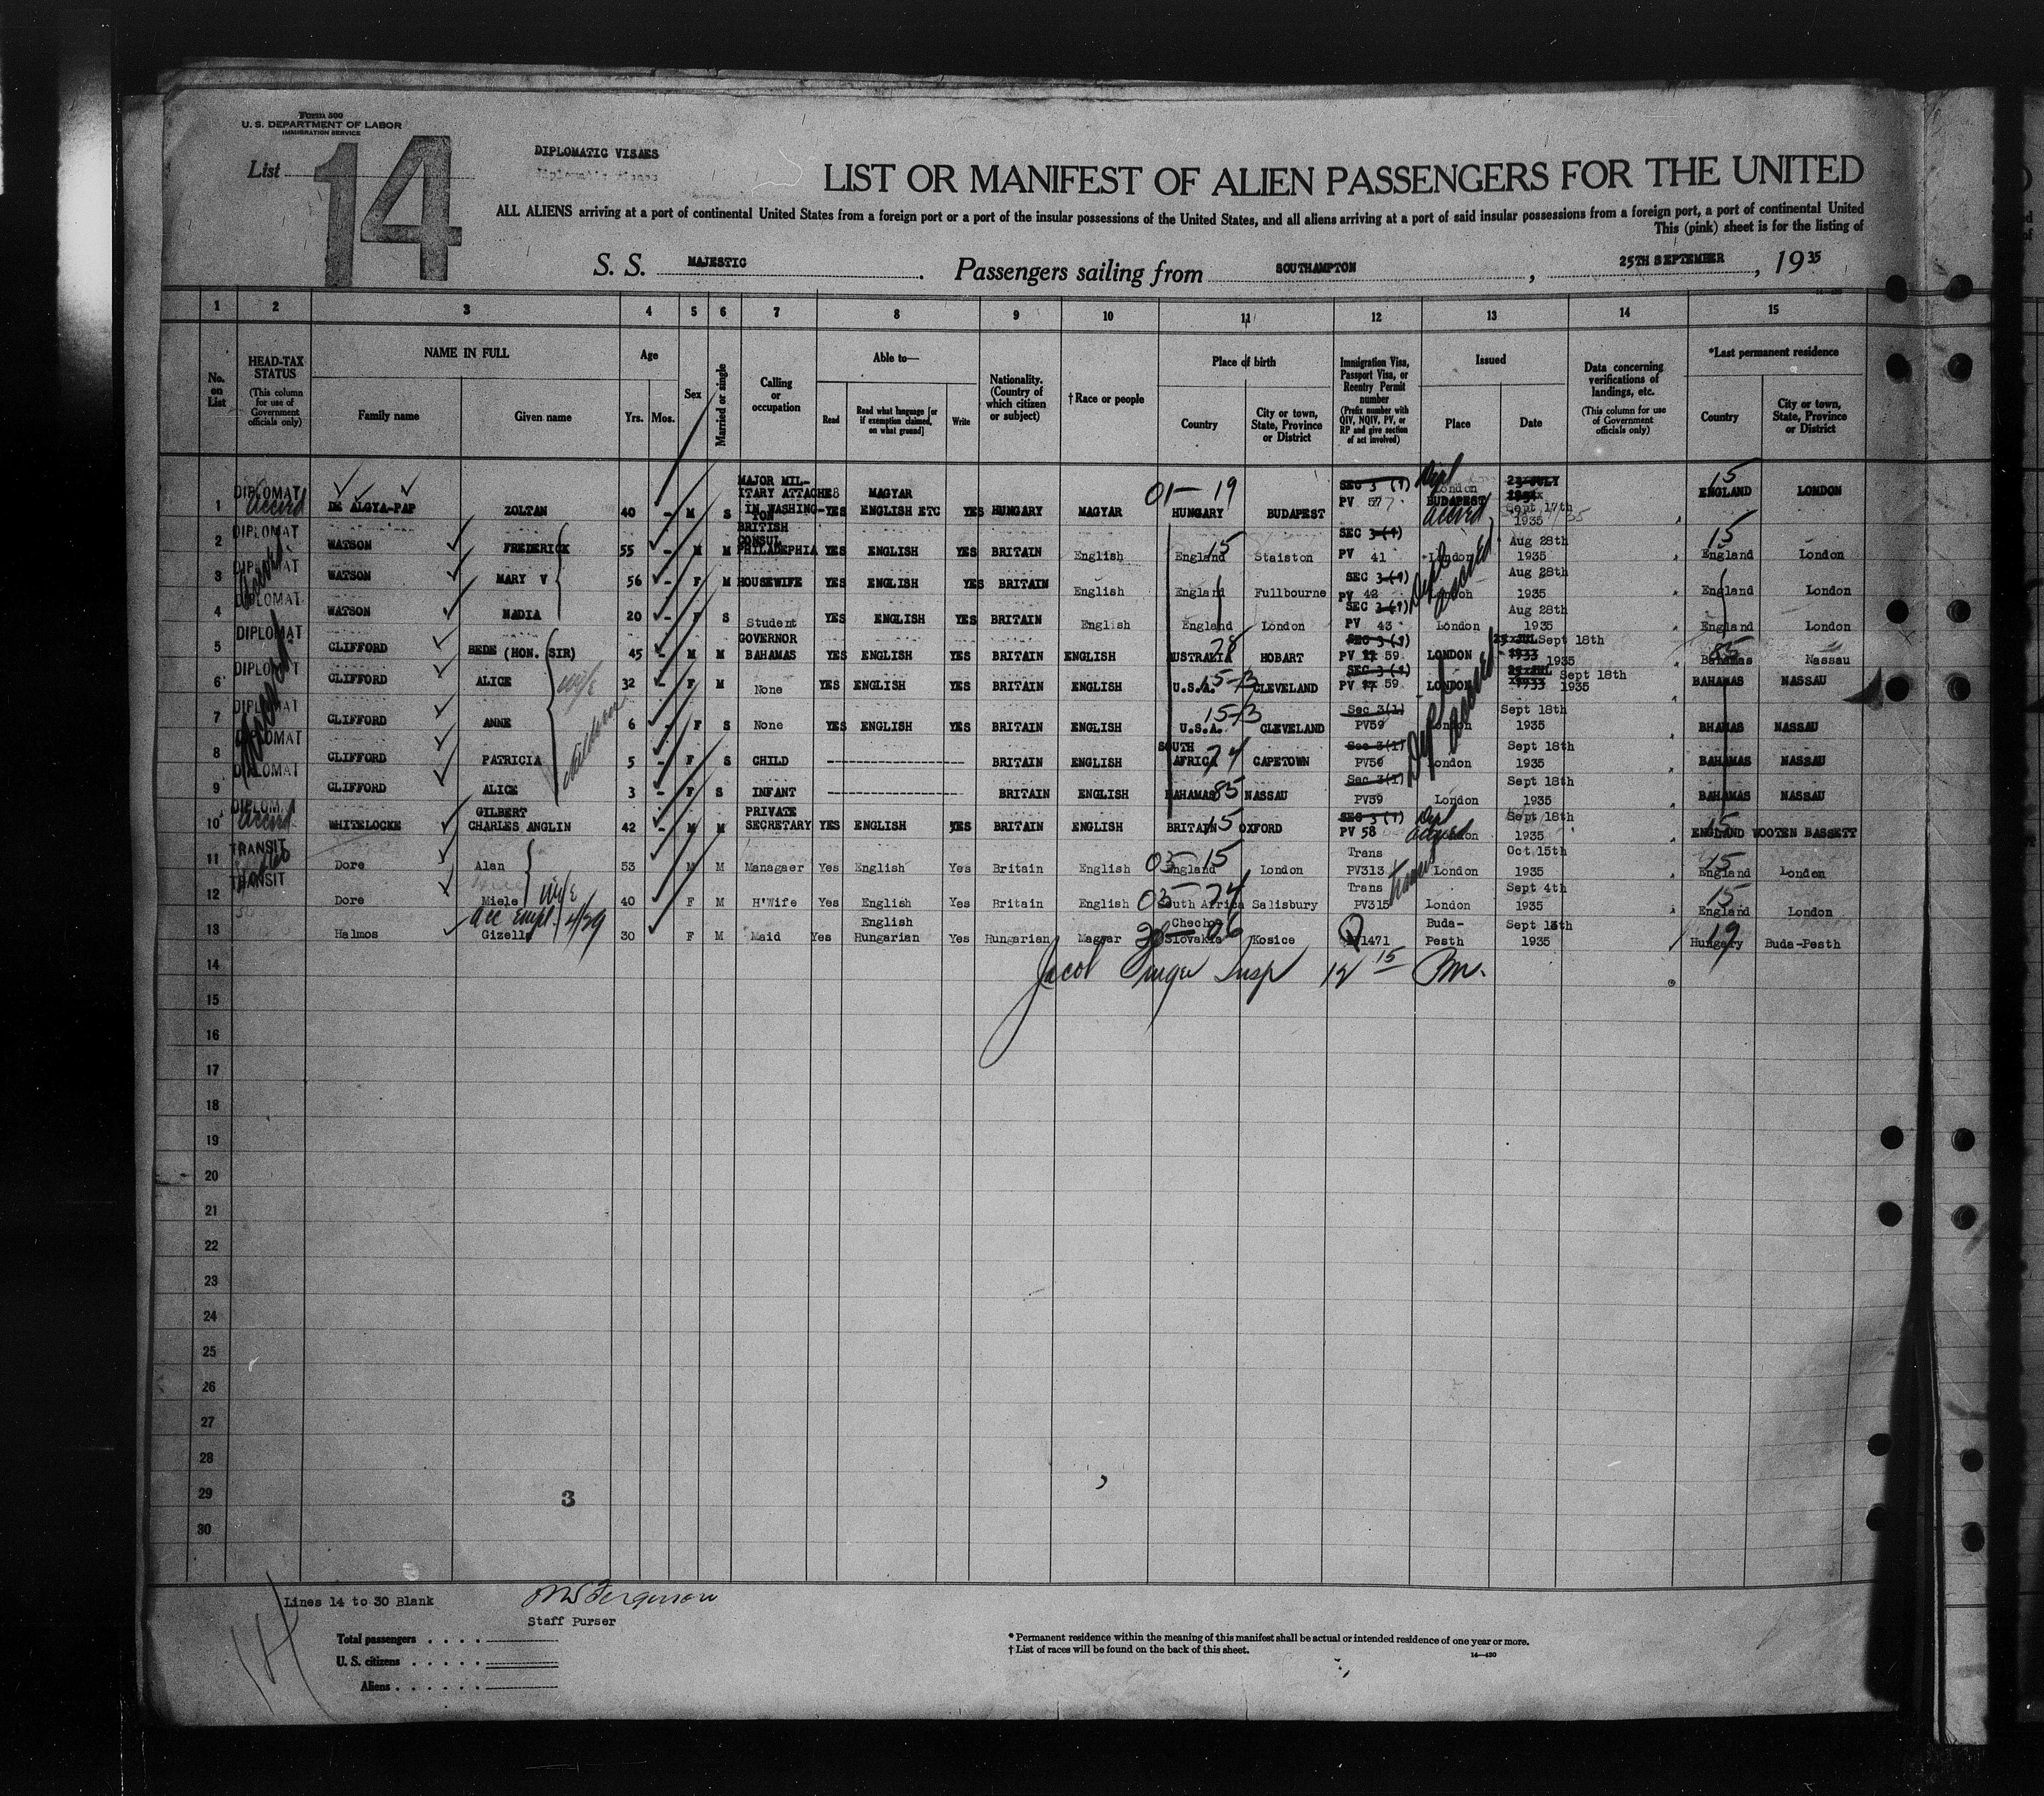 Form 500
U. S. DEPARTMENT OF LABOR
IMMIGRATION SERVICE
List 14
DIPLOMATIC VISAES
LIST OR MANIFEST OF ALIEN PASSENGERS FOR THE UNITED
ALL ALIENS arriving at a port of continental United States from a foreign port or a port of the insular possessions of the United States, and all aliens arriving at a port of said insular possessions from a foreign port, a port of continental United
This (pink) sheet is for the listing of
S. S. MAJESTIC. Passengers sailing from SOUTHAMPTON, 25TH SEPTEMBER, 1935
1 2 3 4 5 6 7 8 9 10 11 12 13 14 15
No. on List
HEAD-TAX STATUS (This column for use of Government officials only)
NAME IN FULL Family name Given name
Age Yrs. Mos.
Sex
Married or single
Calling or occupation
Able to— Read Read what language [or if exemption claimed, on what ground] Write
Nationality. (Country of which citizen or subject)
†Race or people
Place of birth Country City or town, State, Province or District
Immigration Visa, Passport Visa, or Reentry Permit number (Prefix number with QIV, NQIV, PV, or RP and give section of act involved)
Issued Place Date
Data concerning verifications of landings, etc. (This column for use of Government officials only)
*Last permanent residence Country City or town, State, Province or District
1 DIPLOMAT DE ALGYA-PAP ZOLTAN 40 - M S MAJOR MILITARY ATTACHE IN WASHINGTON YES MAGYAR ENGLISH ETC YES HUNGARY MAGYAR 01-19 HUNGARY BUDAPEST SEC 3 (1) PV 577 London BUDAPEST 23 JULY Sept 17th 1935 15 ENGLAND LONDON
2 DIPLOMAT WATSON FREDERICK 55 - M M BRITISH CONSUL PHILADEPHIA YES ENGLISH YES BRITAIN English England 15 Staiston SEC 3 (1) PV 41 London Aug 28th 1935 15 England London
3 DIPLOMAT WATSON MARY V 56 - F M HOUSEWIFE YES ENGLISH YES BRITAIN English England Fullbourne SEC 3 (1) PV 42 London Aug 28th 1935 England London
4 DIPLOMAT WATSON NADIA 20 - F S Student YES ENGLISH YES BRITAIN English England London SEC 3 (1) PV 43 London Aug 28th 1935 England London
5 DIPLOMAT CLIFFORD BEDE (HON. SIR) 45 - M M GOVERNOR BAHAMAS YES ENGLISH YES BRITAIN ENGLISH AUSTRALIA 78 HOBART SEC 3 (1) PV 59 LONDON Sept 18th 1935 85 Bahamas Nassau
6 DIPLOMAT CLIFFORD ALICE wife 32 - F M None YES ENGLISH YES BRITAIN ENGLISH U.S.A. 15-13 CLEVELAND SEC 3 (1) PV 59 LONDON Sept 18th 1935 BAHAMAS NASSAU
7 DIPLOMAT CLIFFORD ANNE 6 - F S None YES ENGLISH YES BRITAIN ENGLISH U.S.A. 15-13 CLEVELAND Sec 3(1) PV59 London Sept 18th 1935 BAHAMAS NASSAU
8 DIPLOMAT CLIFFORD PATRICIA children 5 - F S CHILD BRITAIN ENGLISH SOUTH AFRICA 74 CAPETOWN Sec 3(1) PV59 London Sept 18th 1935 BAHAMAS NASSAU
9 DIPLOMAT CLIFFORD ALICE 3 - F S INFANT BRITAIN ENGLISH BAHAMAS 85 NASSAU Sec 3(1) PV59 London Sept 18th 1935 BAHAMAS NASSAU
10 DIPLOM. WHITELOCKE GILBERT CHARLES ANGLIN 42 - M M PRIVATE SECRETARY YES ENGLISH YES BRITAIN ENGLISH BRITAIN 15 OXFORD SEC 3 (1) PV 58 London Sept 18th 1935 15 ENGLAND WOOTEN BASSETT
11 TRANSIT Dore Alan 53 M M Managaer Yes English Yes Britain English 05-15 England London Trans PV313 London Oct 15th 1935 15 England London
12 TRANSIT Dore Miele wife 40 F M H'Wife Yes English Yes Britain English 05-74 South Africa Salisbury Trans PV315 London Sept 4th 1935 15 England London
13 Halmos Gizella acc empl. 30 F M Maid Yes English Hungarian Yes Hungarian Magyar Checho Slovakia Kosice 1471 Buda-Pesth Sept 13th 1935 19 Hungary Buda-Pesth
14 Jacob Insp 12 15 Pm.
15
16
17
18
19
20
21
22
23
24
25
26
27
28
29
30
3
Lines 14 to 30 Blank
Staff Purser
Total passengers
U. S. citizens
Aliens
14
* Permanent residence within the meaning of this manifest shall be actual or intended residence of one year or more.
† List of races will be found on the back of this sheet.
14—430